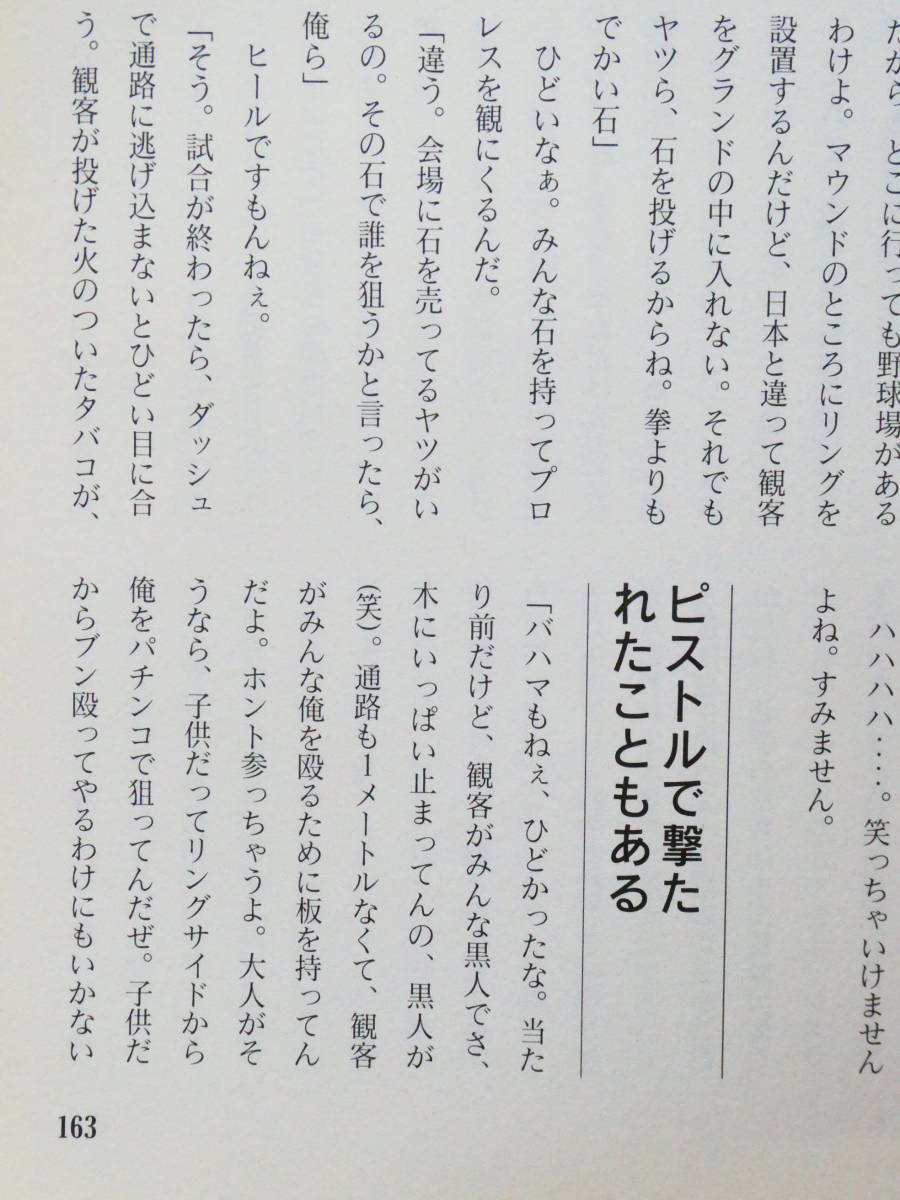 だから、どこに行っても野球場がある
わけよ。マウンドのところにリングを
設置するんだけど、日本と違って観客
をグランドの中に入れない。それでも
ヤツら、石を投げるからね。拳よりも
でかい石」
ひどいなぁ。みんな石を持ってプロ
レスを観にくるんだ。
「違う。会場に石を売ってるヤツがい
るの。その石で誰を狙うかと言ったら、
俺ら」
ヒールですもんねぇ。
「そう。試合が終わったら、ダッシュ
で通路に逃げ込まないとひどい目に合
う。観客が投げた火のついたタバコが、
ハハハハ‥‥。笑っちゃいけません
よね。すみません。
ピストルで撃た
れたこともある
「バハマもねぇ、ひどかったな。当た
り前だけど、観客がみんな黒人でさ、
木にいっぱい止まってんの、黒人が
(笑)。通路も1メートルなくて、観客
がみんな俺を殴るために板を持ってん
だよ。ホント参っちゃうよ。大人がそ
うなら、子供だってリングサイドから
俺をパチンコで狙ってんだぜ。子供だ
からブン殴ってやるわけにもいかない
163